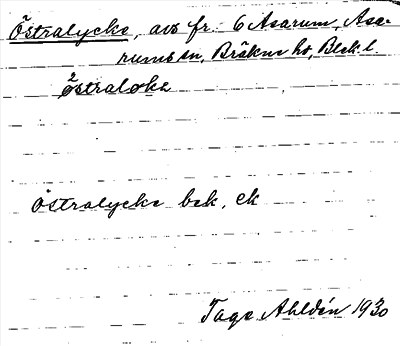 Östralycke, avs fr. 6 Asarum, Asa-
rums sn, Bräkne hd, Blek. l.
östraløkə
östralycke bek, ek
Tage Ahldén 1930